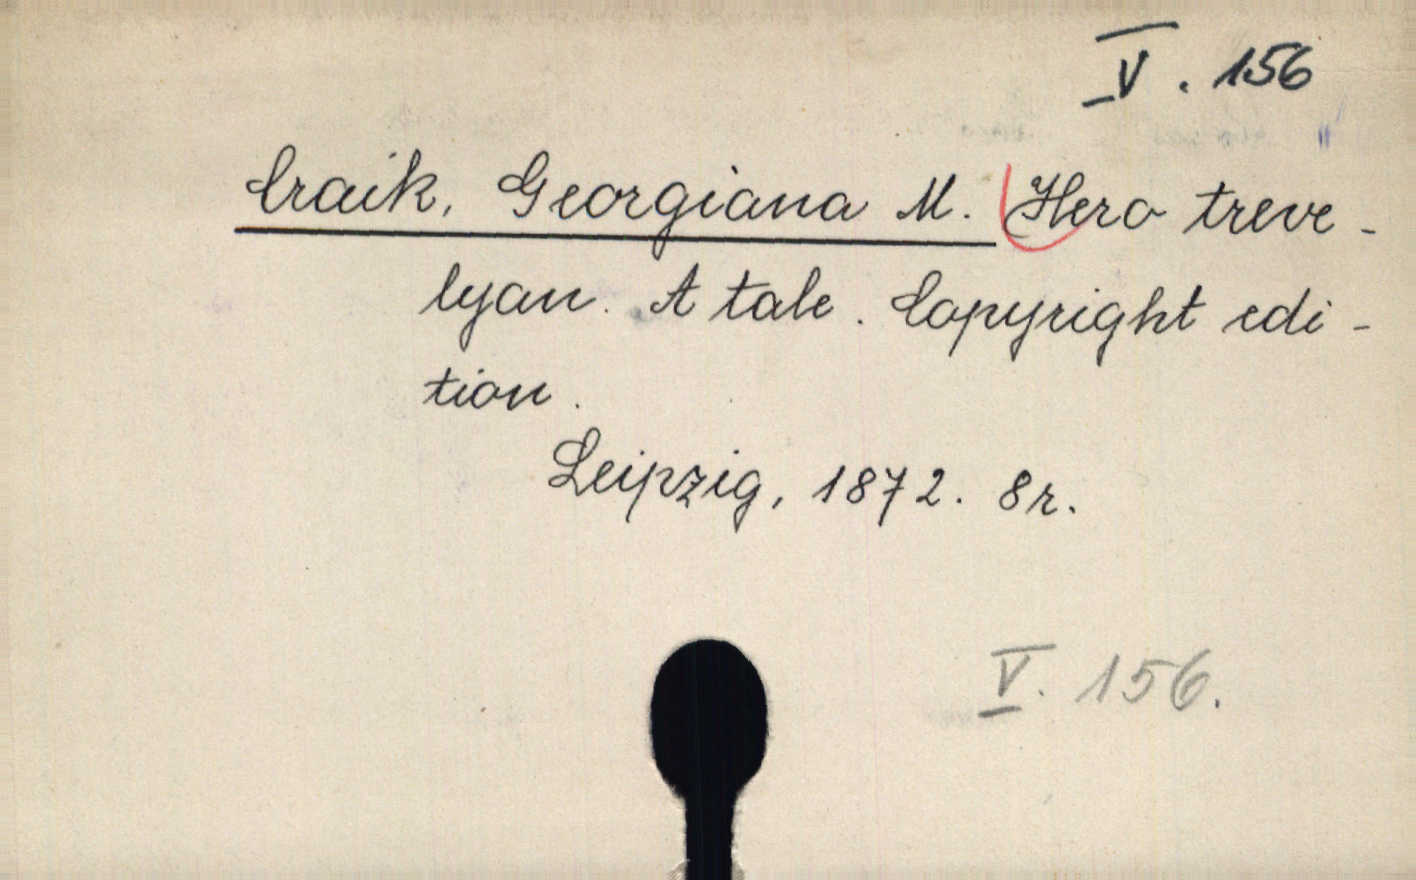 V. 156
Craik, Georgiana M. Hero treve-
lyan. A tale. Copyright edi-
tion.
Leipzig, 1872. 8r.
V. 156.